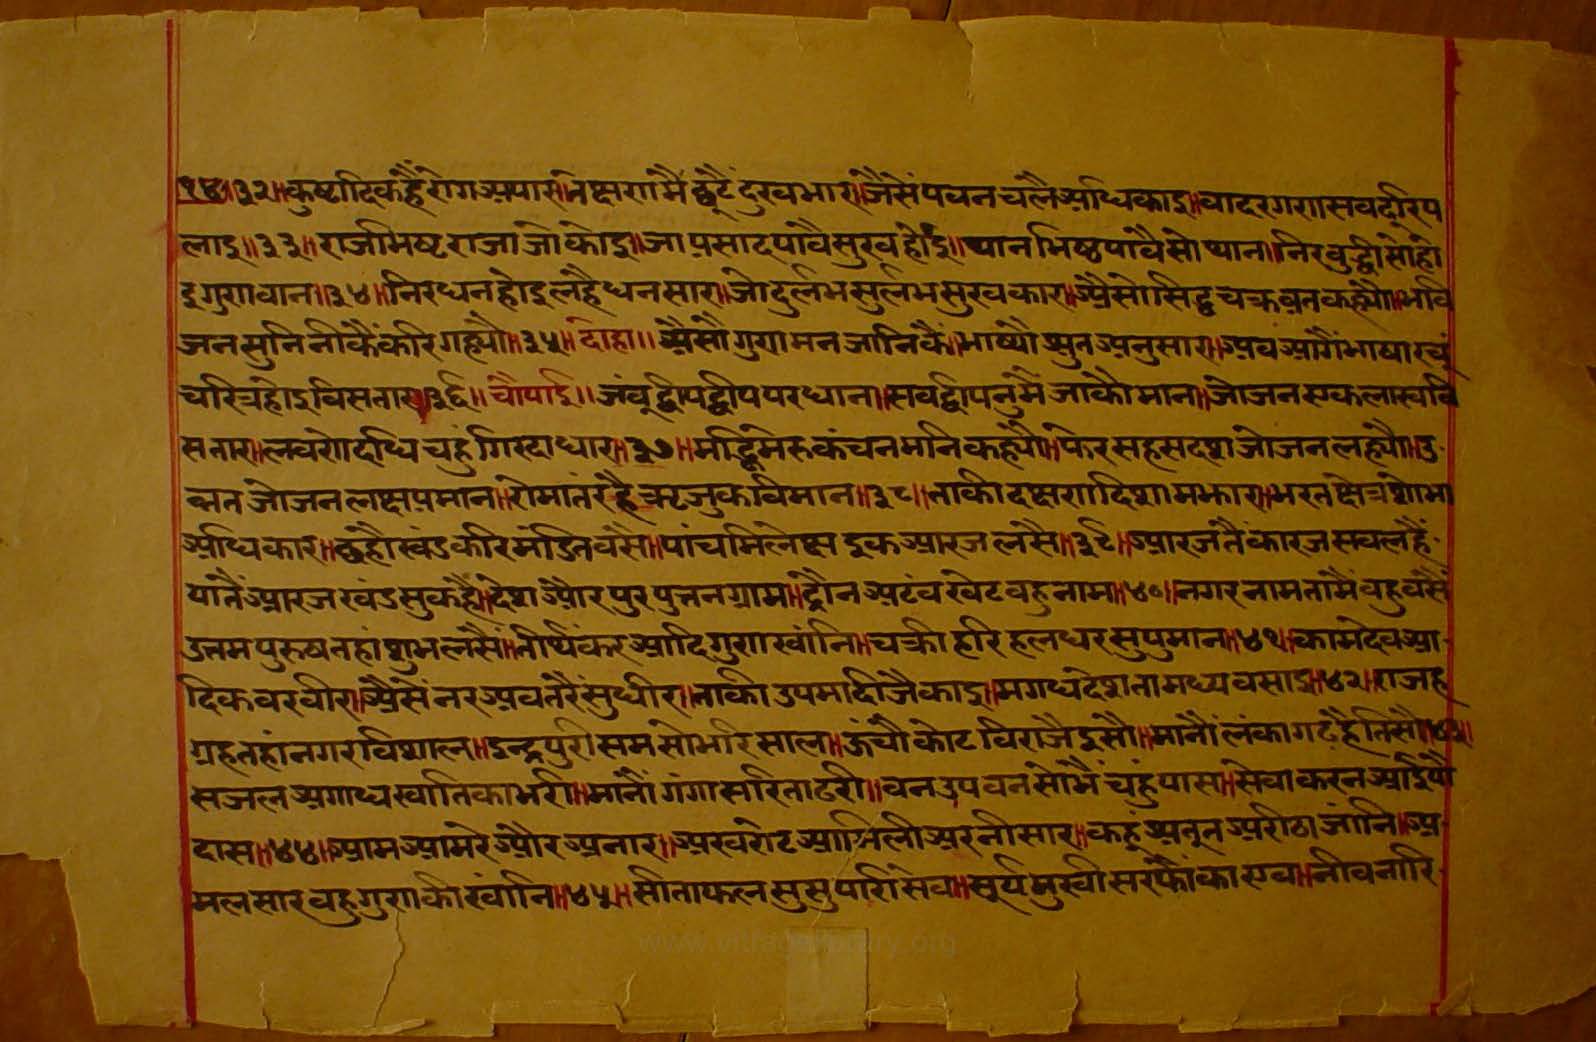 ॥३२॥ कुष्टादिक हैं रोग अपार॥ निक्षरा मै छूटैं दुख भार॥ जैसें पवन चलै अधिकाइ॥ वादर गरा सव दूरि प
लाइ॥३३॥ राजभिष्ट राजा जो कोइ॥ जा प्रसाद पावै सुख होइ॥ थानभिष्ठ पावै सो थान॥ निरवुद्धी सो हो
इ गुरावान॥३४॥ निरधन होइ लहै धन सार॥ जो दुर्लभ सुर्लभ सुखकार॥ अैसो सिद्धचक्र व्रत कह्यौ॥ भवि
जन सुनि नीकैं करि गह्यौ॥३५॥ दोहा॥ अैसौ गुरा मन जानि कैं॥ भाष्यौ श्रुत अनुसार॥ अव आगैं भाषा रचूं
चरित्र होइ विसतार॥३६॥ चौपाई॥ जंवूद्वीप द्वीप परधान॥ सव द्वीपनु मैं जाकौ मान॥ जोजन एक लाख वि
सतार॥ लवरोदधि चहुं गिरदाधार॥३७॥ मद्धि मेरु कंचन मनि कह्यौ॥ फेर सहस दश जोजन लह्यौ॥ उ
न्नत जोजन लक्ष प्रमान॥ रोमांतर है ऋजुक विमान॥३८॥ ताकी दक्षरा दिशा मझार॥ भरत क्षेत्र शोभा
अधिकार॥ छहौं खंड करि मंडित वसै॥ पांच मलेक्ष इक आरज लसै॥३९॥ आरज तैं कारज सव लहैं
यातैं आरज खंड सु कहै॥ देश और पुर पत्तन ग्राम॥ द्रौन अटंव खेट वहु नाम॥४०॥ नगर नाम तामैं वहु वसैं
उत्तम पुरुष तहां शुभ लसैं॥ तीर्थंकर आदि गुरा खांनि॥ चक्री हरि हलधर सु पुमान॥४१॥ कामदेव आ
दिक वर वीर॥ अैसें नर अवतरैं सुधीर॥ ताकी उपमा दीजै काइ॥ मगध देश ता मध्य वसाइ॥४२॥ राजह
ग्रह तहां नगर विशाल॥ इन्द्रपुरी सम सोभ रिसाल॥ ऊंचौ कोट विराजै इसौ॥ मानौं लंका गढ़ है तिसौ॥४३॥
सजल अगाध खातिका भरी॥ मांनौं गंगा सरिता ढरी॥ वन उपवन सोभैं चहुं पास॥ सेवा करन आइ पौ
दास॥४४॥ आम आमरे और अनार॥ अखरोट आमिली अरनी सार॥ कहूं अतूत अरीठा जांनि॥ अ
मलसार वहु गुरा की खांनि॥४५॥ सीताफल सु सुपारी सेव॥ सूर्यमुखी सरफौंका एव॥ नीव नारि
www.vitragelibrary.org